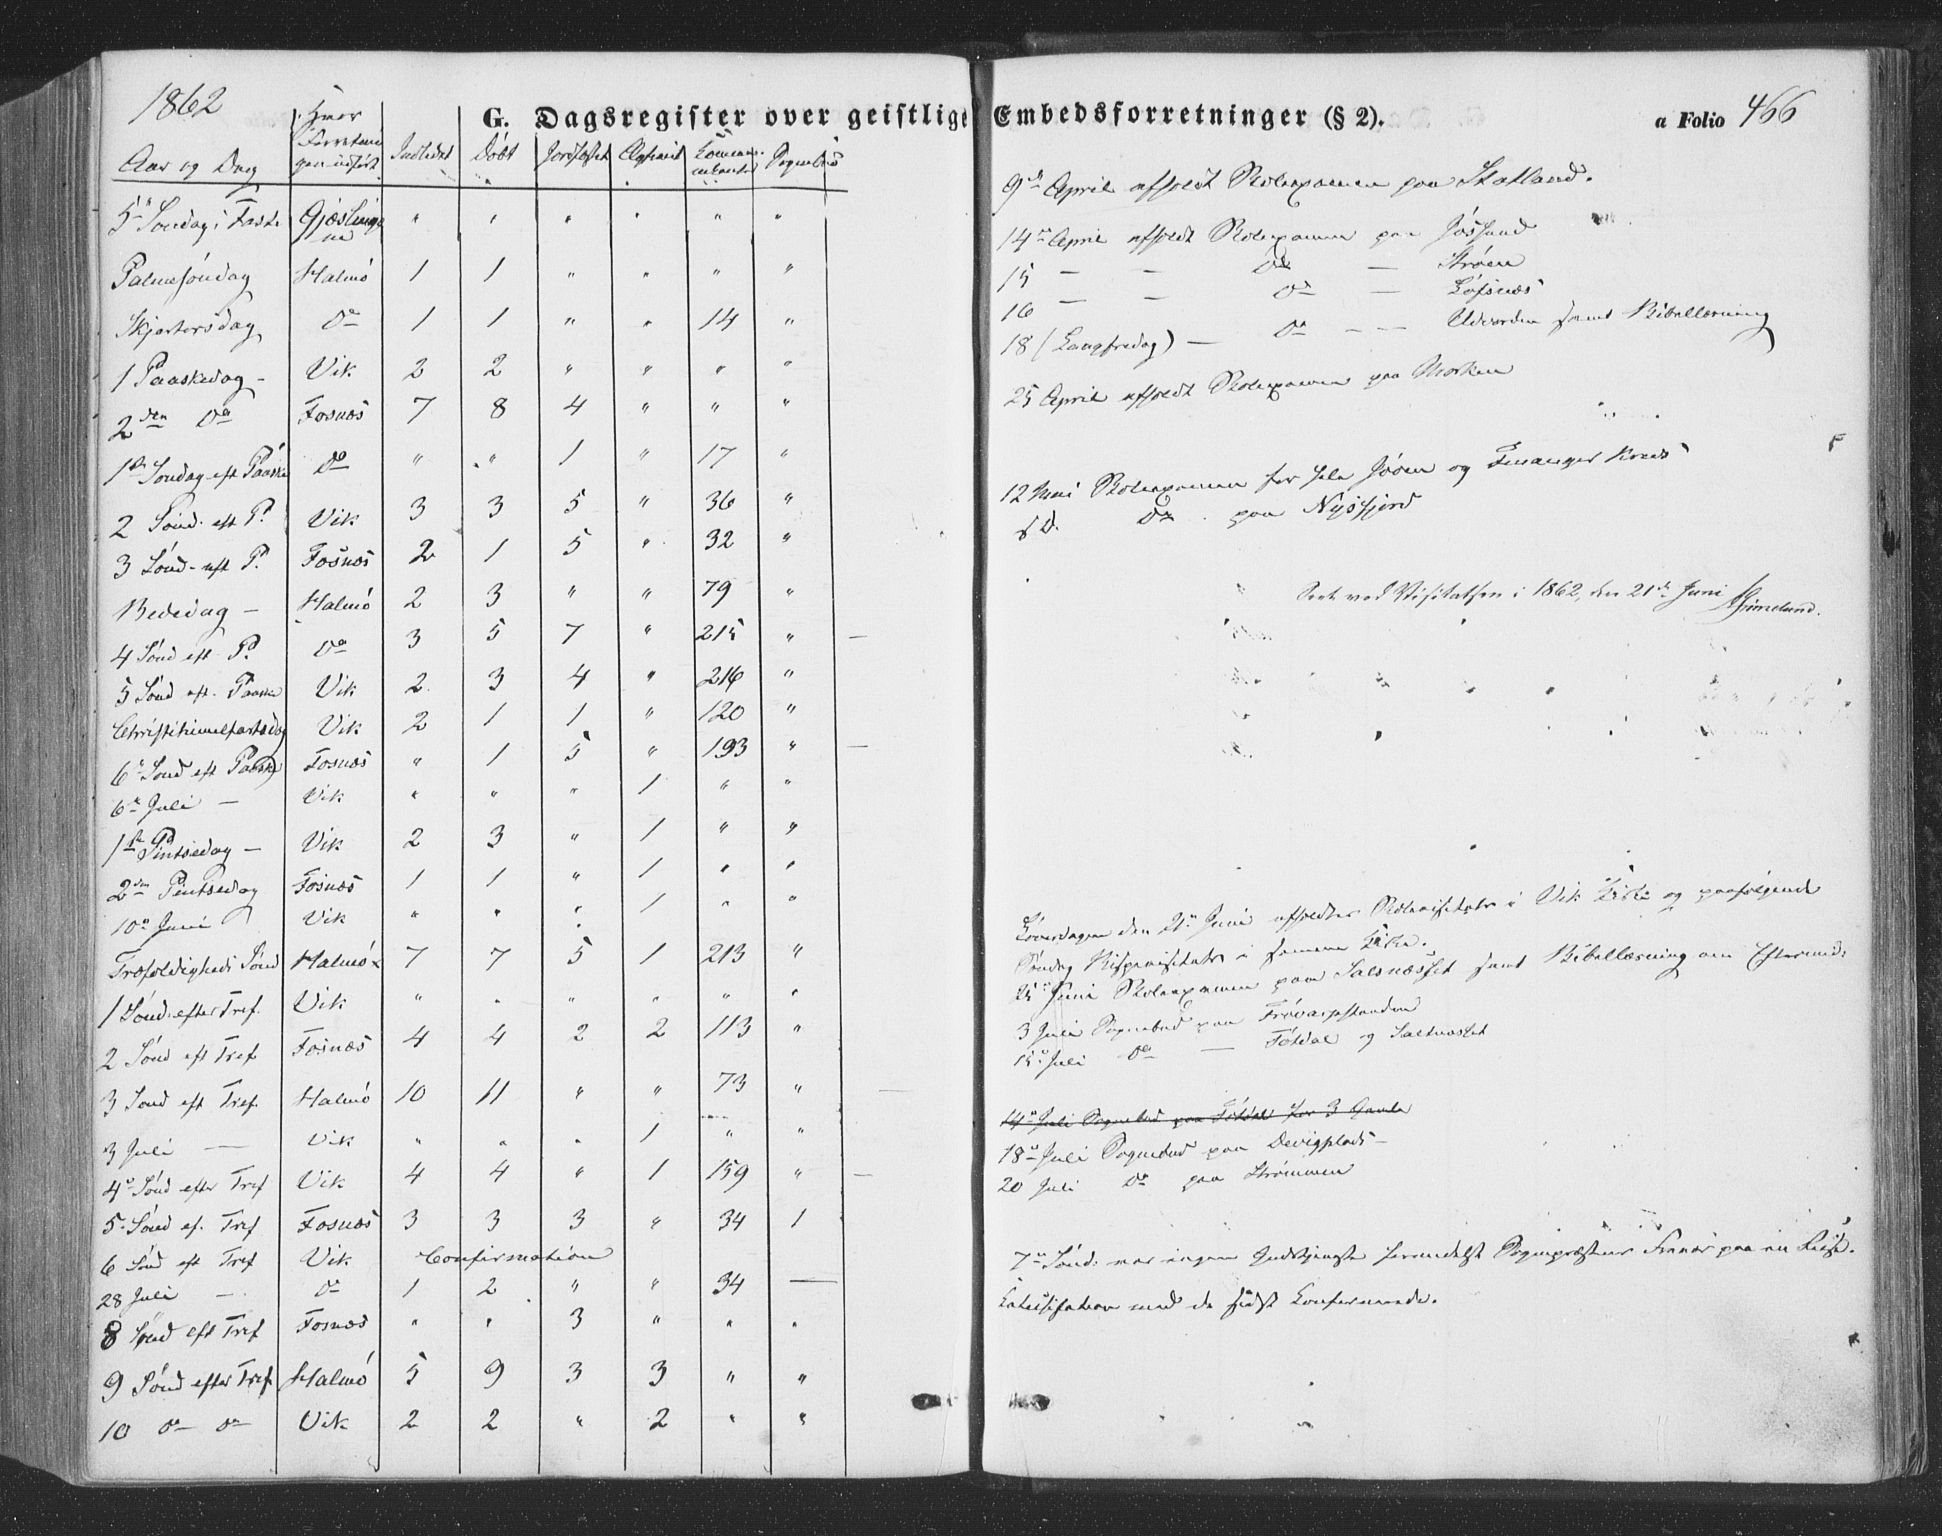 1862
G. Dagsregister over geistlige
Aar og Dag Hvor Forretnin gen udført Indledet Døbt Jordfæstet Ægteviet Commu nikanter Sognebud
5te Søndag i Faste Gjæslinge ne " " " " " "
Palmesøndag Halmö 1 1 " " " "
Skjærtorsdag Do 1 1 " " 14 "
1 Paaskedag - Vik 2 2 " " " "
2den Do Fosnæs 7 8 4 " " "
1ste Søndag eft Paaske Do " " 1 " 17 "
2 Sønd. eft P. Vik 3 3 5 " 36 "
3 Sønd. eft P. Fosnæs 2 1 5 " 32 "
Bededag - Halmö 2 3 " " 79 "
4 Sønd eft P. Do 3 5 7 " 215 " -
5 Sønd eft. Paaske Vik 2 3 4 " 216 "
Christihimmelfartsdag Vik 2 1 1 " 120 "
6te Sønd eft Paaske Fosnæs " 1 5 " 193 " -
6te Juli - Vik " " " 1 " "
1ste Pintsedag - Vik 2 3 " 1 " "
2den Pintsedag Fosnæs 1 1 " 1 " "
10de Juni Vik " " " 1 " "
Trefoldigheds Sønd Halmö 7 7 5 1 213 "
1 Sønd. efter Tref. Vik " " " " " "
2 Sønd eft Tref Fosnæs 4 4 2 2 113 "
3 Sønd eft Tref. Halmö 10 11 " " 73 " -
3 Juli - Vik " " " 1 " "
4de Sønd efter Tref Vik 4 4 " 1 159 " -
5. Sønd ef. Tref Fosnæs 3 3 3 " 34 1
6 Sønd eft Tref Vik Confirmation
28 Juli - Do 1 2 " " 34 -
8 Sønd eft Tref Fosnæs " " 3 " " "
9 Sønd efter Tref. Halmö 5 9 3 3 " "
10 do do Vik 2 2 " 2 " "
Embedsforretninger (§ 2).
a Folio 466
9de April afholdt Skolexamen paa Statland.
14de April afholdt Skolexamen paa Jøssund
15 - - Do - Strøm
16 - - Do - Løfsnæs
18 (Langfredag) - Do - - Udvorden samt Bibellæsning
25 April afholdt Skolexamen paa Morken
12 Mai Skolexamen for Jøen og Finanger Kreds
s D. Do paa Nysfjord
Seet ved Visitatsen i 1862, den 21de Juni
Löverdagen den 21de Juni afholdtes Skolevisitats i Vik Kirke og paafølgende
Søndag Bispevisitats i samme Kirke.
25de Juni Skolexamen paa Salsnæsset samt Bibellæsning om Eftermd:
3 Juli Sognebud paa
15de Juli Do - og Saltnæsset
14de Juli Sognebud paa for 3 Gamle
18de Juli Sognebud paa
20 Juli Do paa Strømmen
7de Sønd: var ingen Gudstjeneste formedelst Sognepræstens paa en Reise.
Katechisation med de sidst Konfirmerede.